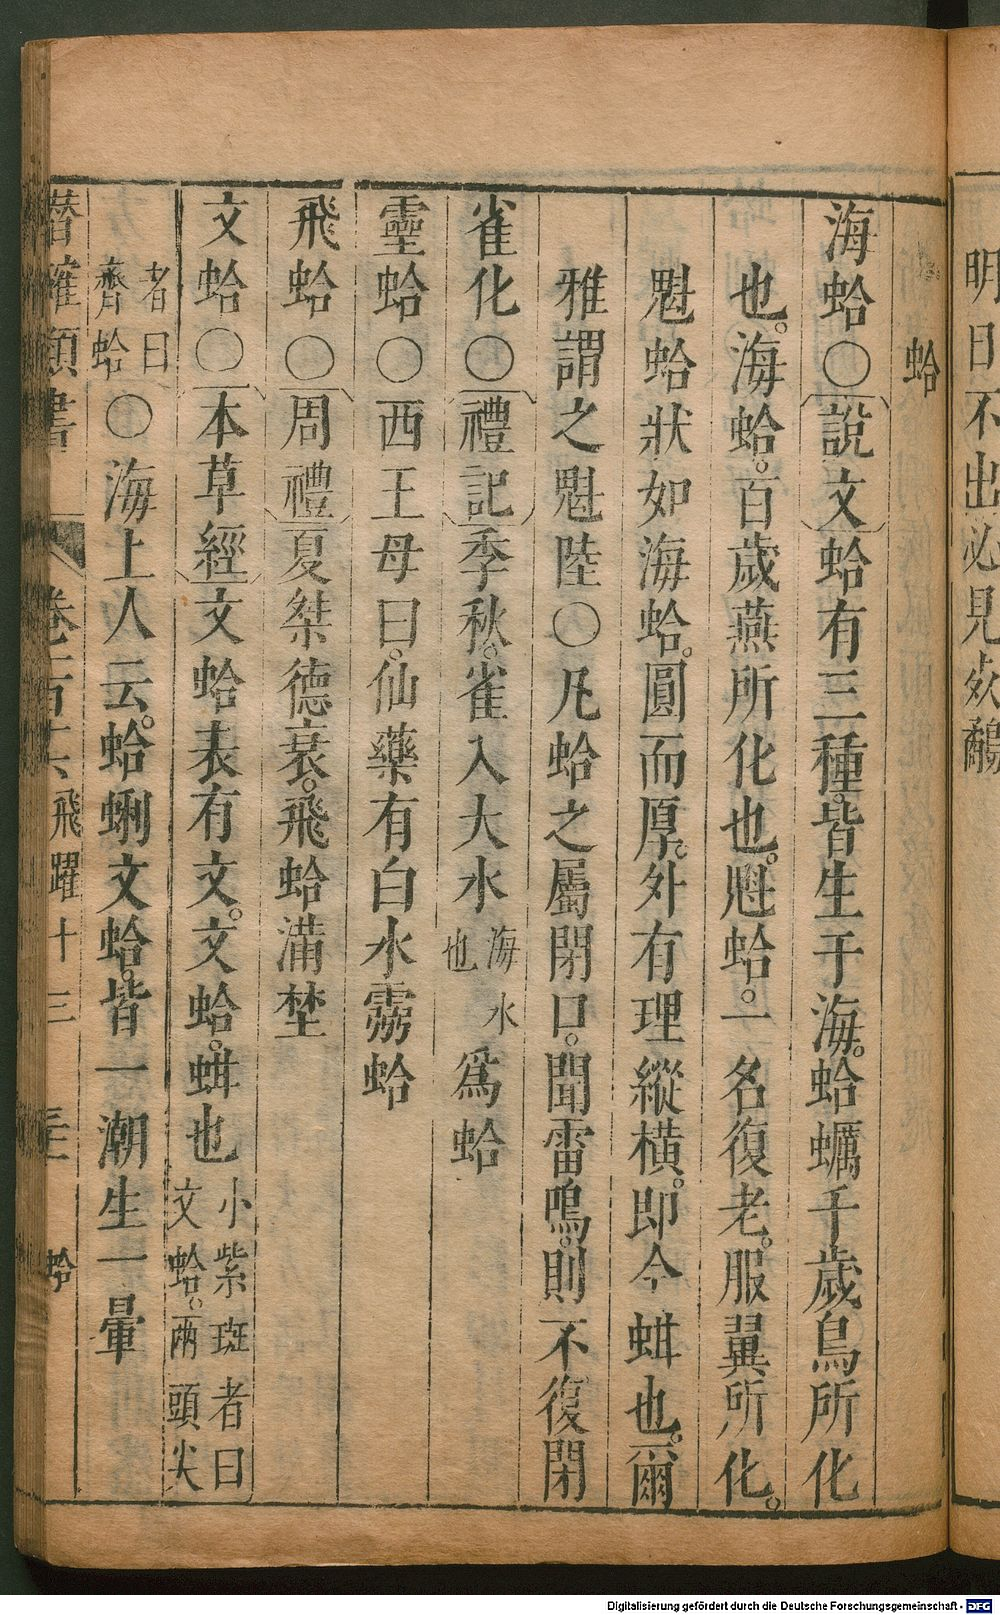 明日不出必見死鷸
蛤
海蛤○說文蛤有三種皆生于海。蛤蠣千歲鳥所化
也。海蛤。百歲燕所化也。魁蛤。一名復老。服翼所化。
魁蛤狀如海蛤。圓而厚。外有理縱橫。即今蚶也。爾
雅謂之魁陸○凡蛤之屬閉口。聞雷鳴。則不復閉
雀化○禮記季秋。雀入大水海水也爲蛤
靈蛤○西王母曰。仙藥有白水靈蛤
飛蛤○周禮夏桀德衰。飛蛤滿埜
文蛤○本草經文蛤表有文。文蛤。蚶也小紫斑者曰文蛤。兩頭尖
者曰齊蛤○海上人云。蛤蜊文蛤。皆一潮生一暈
潛確類書 卷一百十六 飛躍十三 蛤
Digitalisierung gefördert durch die Deutsche Forschungsgemeinschaft - DFG